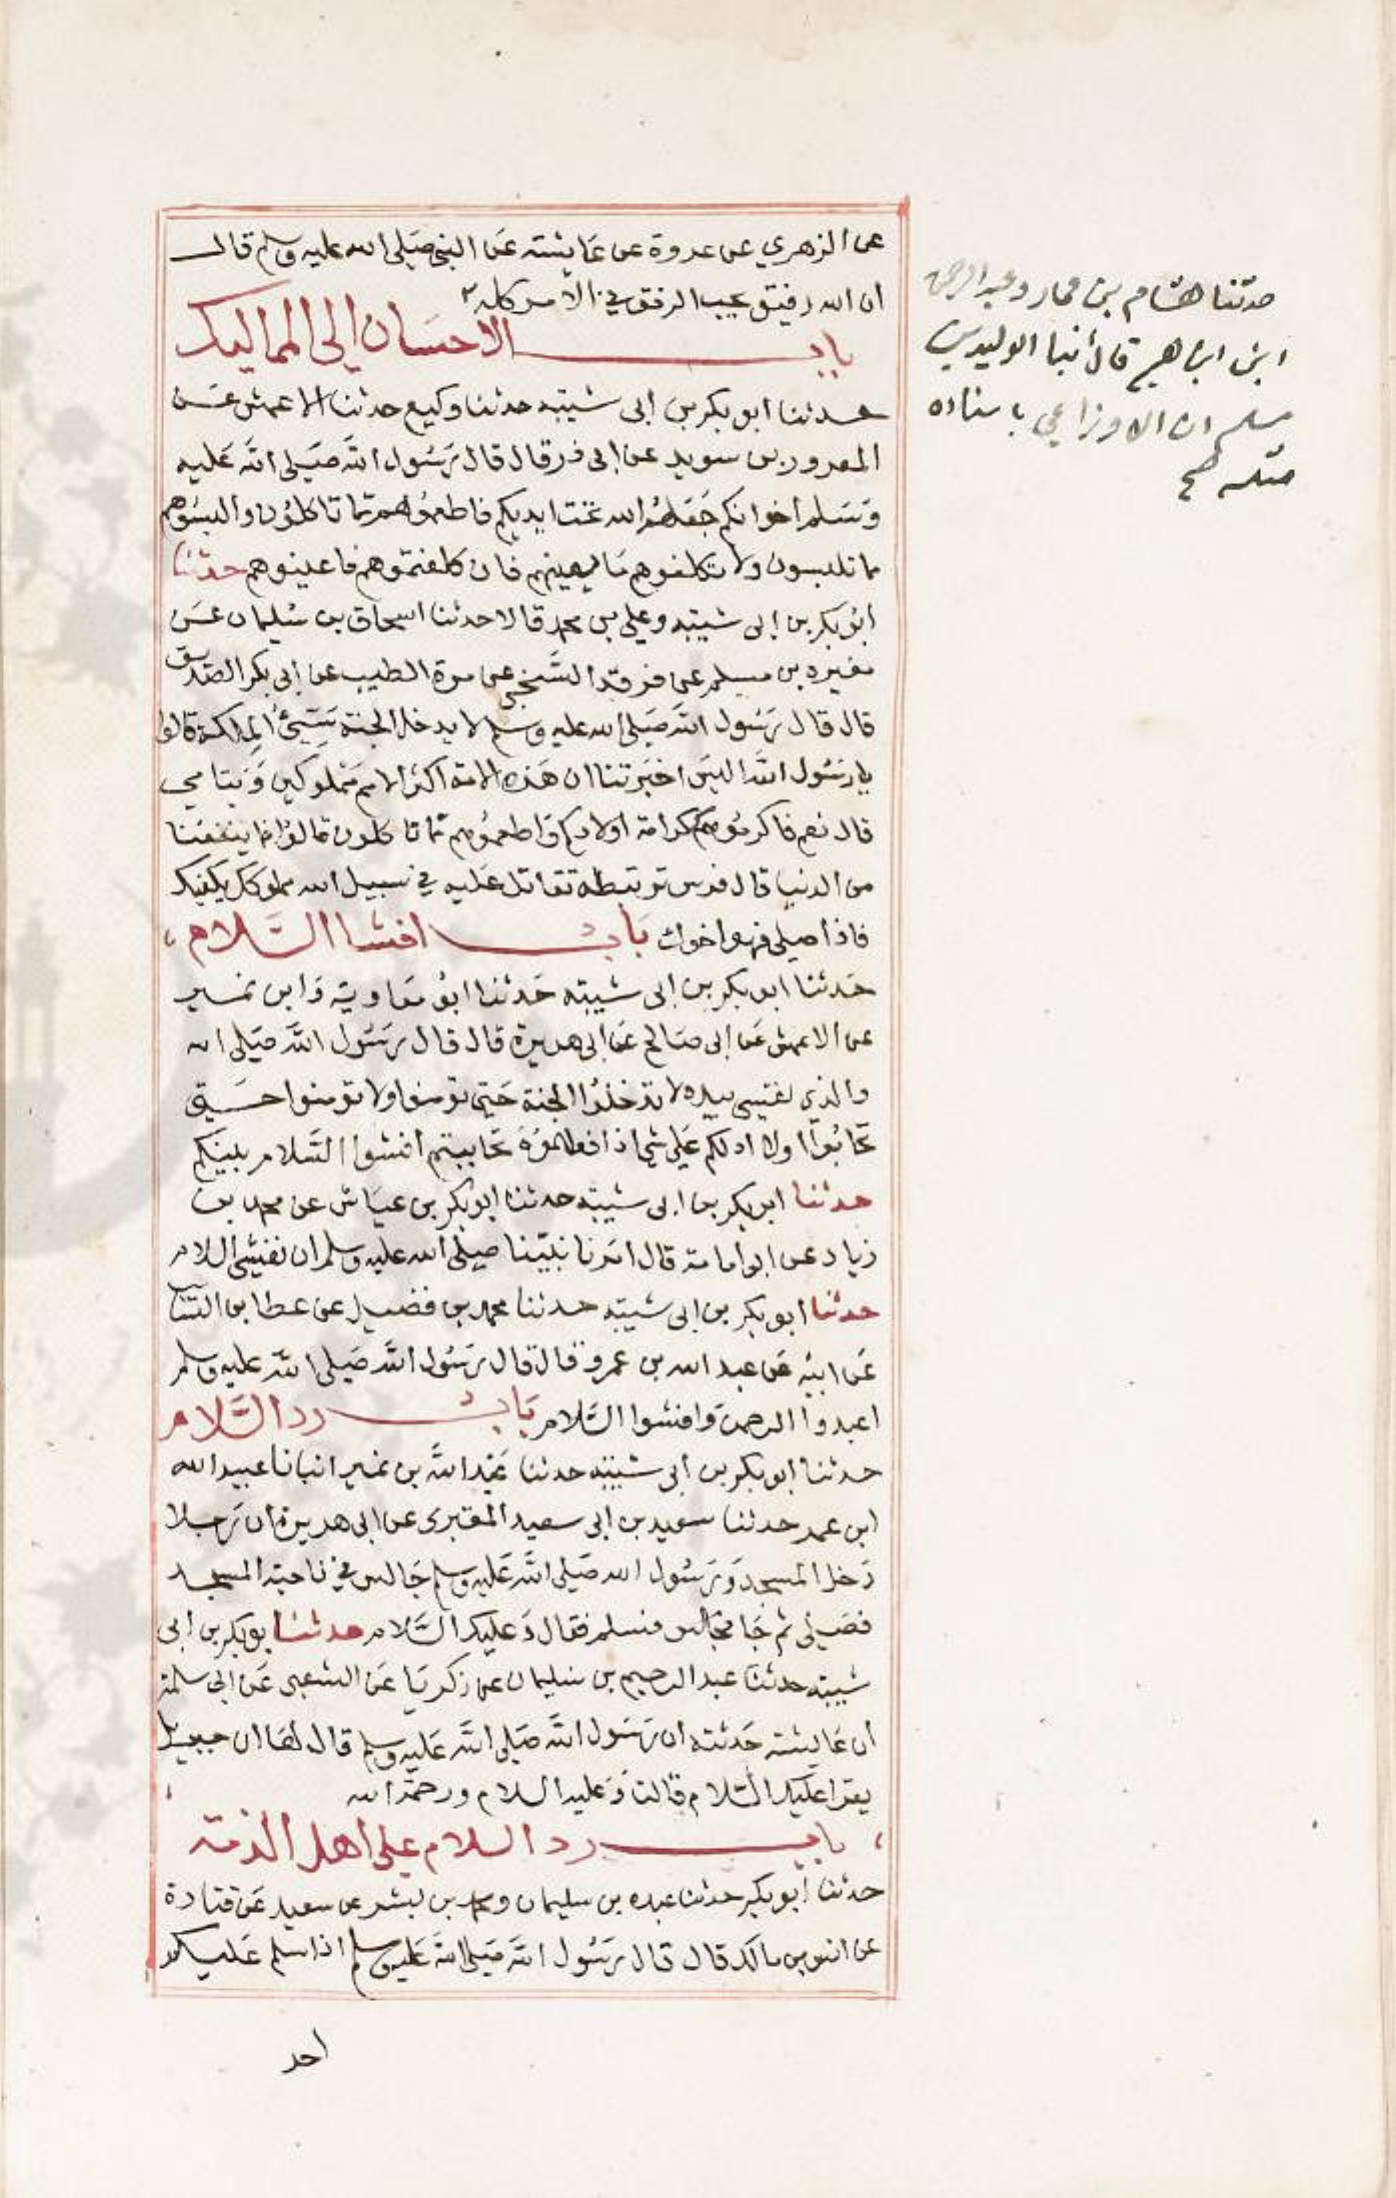 عن الزهري عن عروة عن عايشته عن النبي صلى الله عليه وسلم قال
ان الله رفيق يحب الرفق في الامر كله
باب الاحسان الى المماليك
حدثنا ابو بكر بن ابى شيبته حدثنا وكيع حدثنا الاعمش عن
المعرور بن سويد عن ابى ذر قال قال رسول الله صلى الله عليه
وسلم اخوانكم جعلهم الله تحت ايديكم فاطعموهم مما تاكلون والبسوهم
ما تلبسون ولا تكلفوهم ما يعينهم فان كلفتموهم فاعينوهم حدثنا
ابو بكر بن ابى شيبته وعلي بن محمد قالا حدثنا اسحاق بن سليمان عن
مغيره بن مسلم عن فرقد السنجي عن مرة الطيب عن ابى بكر الصديق
قال قال رسول الله صلى الله عليه وسلم لا يدخل الجنة سيئ الملكة قالوا
يا رسول الله اليس اخبرتنا ان هذه الامته اكثر الامم مملوكين ويتامي
قال نعم فاكرموهم كرامة اولادكم واطعموهم مما تاكلون قالوا فما ينفعنا
من الدنيا قال فرس تربتطه تقاتل عليه في سبيل الله مملوكك يكفيك
فاذا صلى فهو اخوك باب افشا السلام
حدثنا ابو بكر بن ابى شيبته حدثنا ابو معاوية وابن نمير
عن الاعمش عن ابى صالح عن ابى هريرة قال قال رسول الله صلى الله
والذي نفسي بيده لا تدخلوا الجنة حتى تومنوا ولا تومنوا حتى
تحابوا اولا ادلكم على شي اذا فعلتموه تحاببتم افشوا السلام بينكم
حدثنا ابو بكر بن ابى شيبته حدثنا ابو بكر بن عياش عن محمد بن
زياد عن ابو امامة قال امرنا نبينا صلى الله عليه وسلم ان نفشي السلام
حدثنا ابو بكر بن ابى شيبته حدثنا محمد بن فضيل عن عطا بن السائب
عن ابيه عن عبد الله بن عمرو قال قال رسول الله صلى الله عليه وسلم
اعبدوا الرحمن وافشوا السلام باب رد السلام
حدثنا ابو بكر بن ابى شيبته حدثنا عبد الله بن نمير انبانا عبيد الله
ابن عمر حدثنا سعيد بن ابى سعيد المقبرى عن ابى هريرة ان رجلا
دخل المسجد ورسول الله صلى الله عليه وسلم جالس في ناحية المسجد
فصلى ثم جا فسلم فقال وعليك السلام حدثنا بو بكر بن ابى
شيبته حدثنا عبد الرحيم بن سليمان عن زكريا عن الشعبى عن ابى سلمة
ان عايشته حدثته ان رسول الله صلى الله عليه وسلم قال لها ان جبريل
يقرا عليك السلام قالت وعليه السلام ورحمة الله
باب رد السلام على اهل الذمة
حدثنا ابو بكر حدثنا عبده بن سليمان ومحمد بن بشر عن سعيد عن قتادة
عن انس بن مالك قال قال رسول الله صلى الله عليه وسلم اذا سلم عليكم
احد
حدثنا هشام بن عمار وعبد الرحمن
ابن ابراهيم قال أنبا الوليد بن
مسلم ان الاوزاعي باسناده
مثله صح